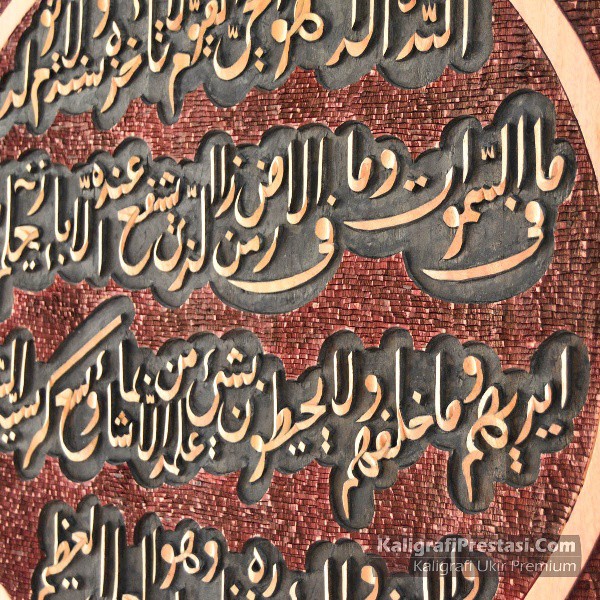 الله الا هو الحي القيوم لا تأخذه سنة ولا نوم
ما في السموات وما في الارض من ذا الذي يشفع عنده الا باذنه يعلم
ايديهم وما خلفهم ولا يحيطون بشيء من علمه الا بما شاء وسع كرسيه
وهو العظيم
KaligrafiPrestasi.Com
Kaligrafi Ukir Premium